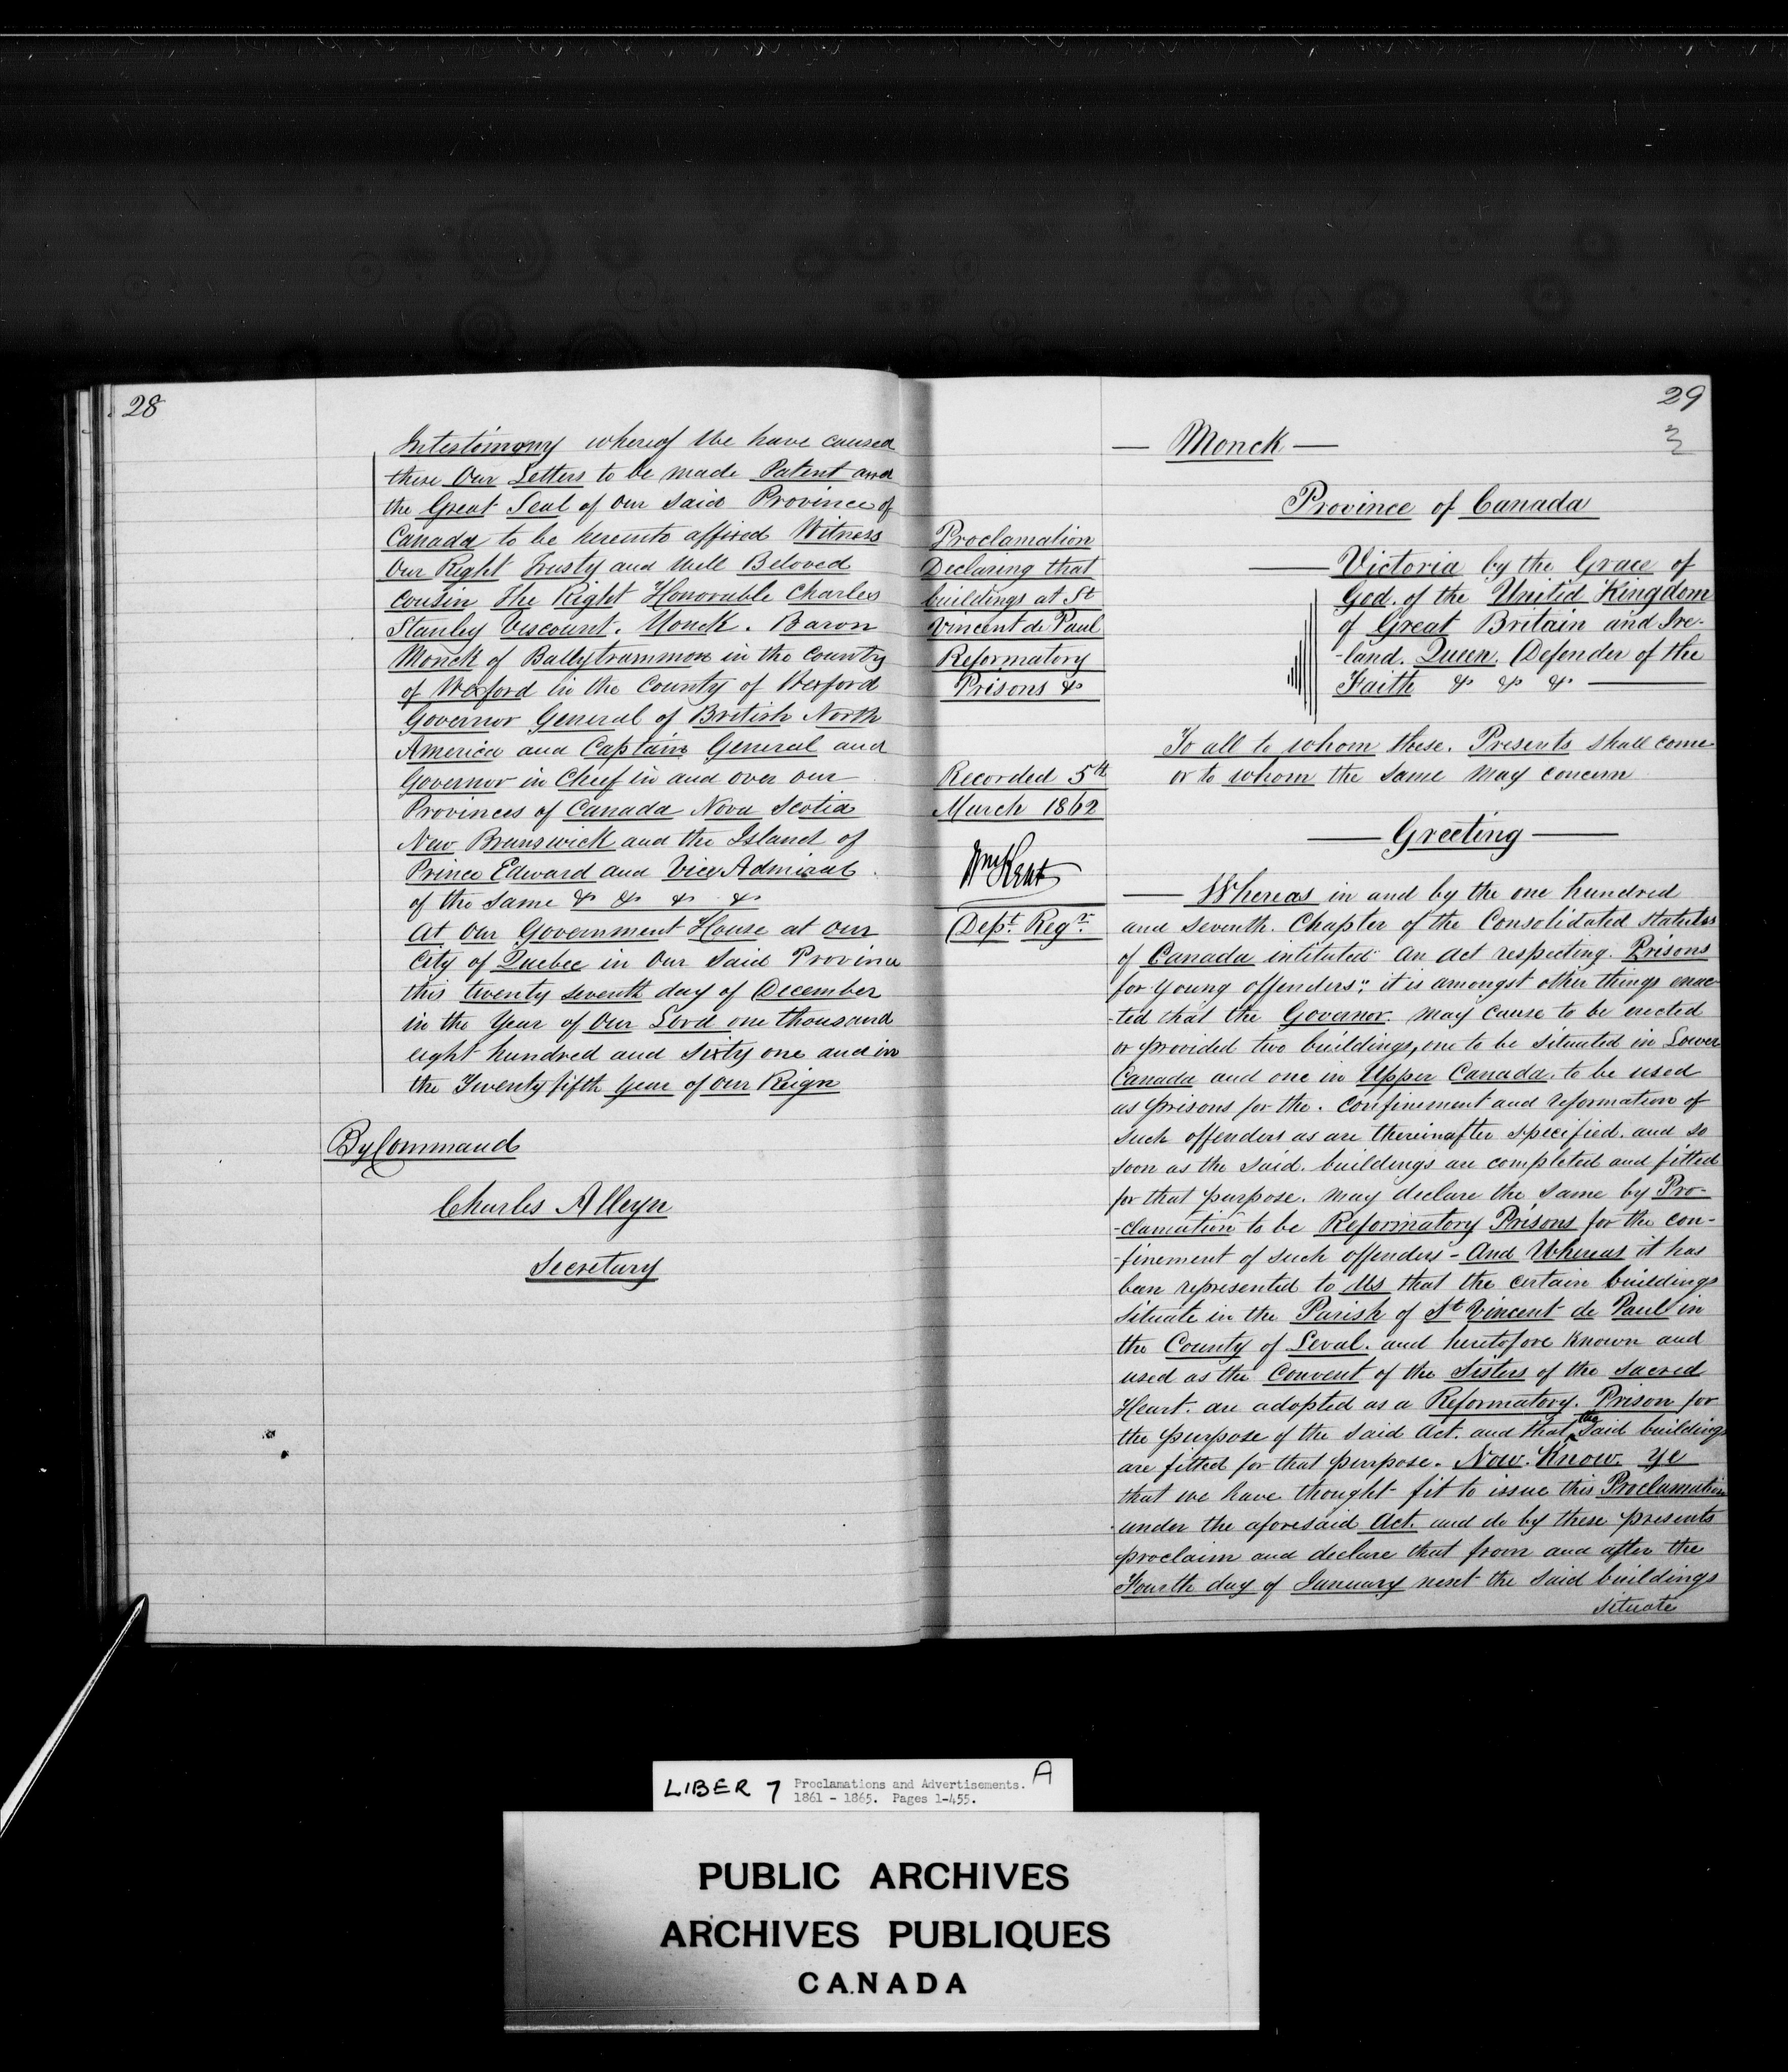 28
Intestimony whereof We have caused
these Our Letters to be made Patent and
the Great Seal of Our Said Province of
Canada to be hereunto affixed Witness
Our Right Trusty and Well Beloved
Cousin The Right Honorable Charles
Stanley Viscount. Monck. Baron
Monck of Ballytrammon in the County
of Wexford in the County of Wexford
Governor General of British North
America and Captain General and
Governor in Chief in and over our
Provinces of Canada Nova Scotia
New Brunswick and the Island of
Prince Edward and Vice Admiral
of the same & & & &
At Our Government House at our
City of Quebec in Our Said Province
this twenty seventh day of December
in the Year of Our Lord one thousand
eight hundred and Sixty one and in
the Twenty fifth Year of our Reign
By Command
Charles Alleyn
Secretary
29
3
Proclamation
Declaring that
buildings at St
Vincent de Paul
Reformatory
Prisons &
Recorded 5th
March 1862
Wm Kent
Dept. Regr.
— Monck —
Province of Canada
Victoria by the Grace of
God. of the United Kingdom
of Great Britain and Ire-
-land. Queen. Defender of the
Faith & & &
To all to whom these. Presents shall come
or to whom the same may concern
Greeting
Whereas in and by the one hundred
and Seventh. Chapter of the Consolidated Statutes
of Canada intituted "An Act respecting. Prisons
for young offenders": it is amongst other things enac-
-ted that the Govenor. may cause to be erected
or provided two buildings, one to be situated in Lower
Canada and one in Upper Canada. to be used
as prisons for the. confinement and reformation of
such offenders as are thereinafter specified. and so
soon as the said. buildings are completed and fitted
for that purpose. may declare the same by Pro-
-clamation to be Reformatory Prisons for the con-
-finement of such offenders - And Whereas it has
been represented to Us that the certain buildings
situate in the Parish of St Vincent de Paul in
the County of Leval. and heretofore known and
used as the Convent of the Sisters of the Sacred
Heart. are adopted as a Reformatory. Prison for
the purpose of the said Act. and that the said buildings
are fitted for that purpose. Now. Know. Ye
that we have thought fit to issue this Proclamation
under the aforesaid Act. and do by these presents
proclaim and declare that from and after the
Fourth day of January next the said buildings
situate
LIBER 7 Proclamations and Advertisements. A
1861 - 1865. Pages 1-455.
PUBLIC ARCHIVES
ARCHIVES PUBLIQUES
CANADA